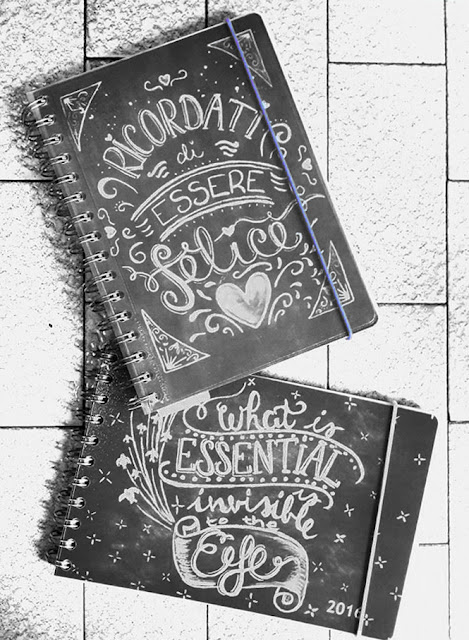 RICORDATI
di
ESSERE
felice
What is
ESSENTIAL
invisible
to the
Eye
2016